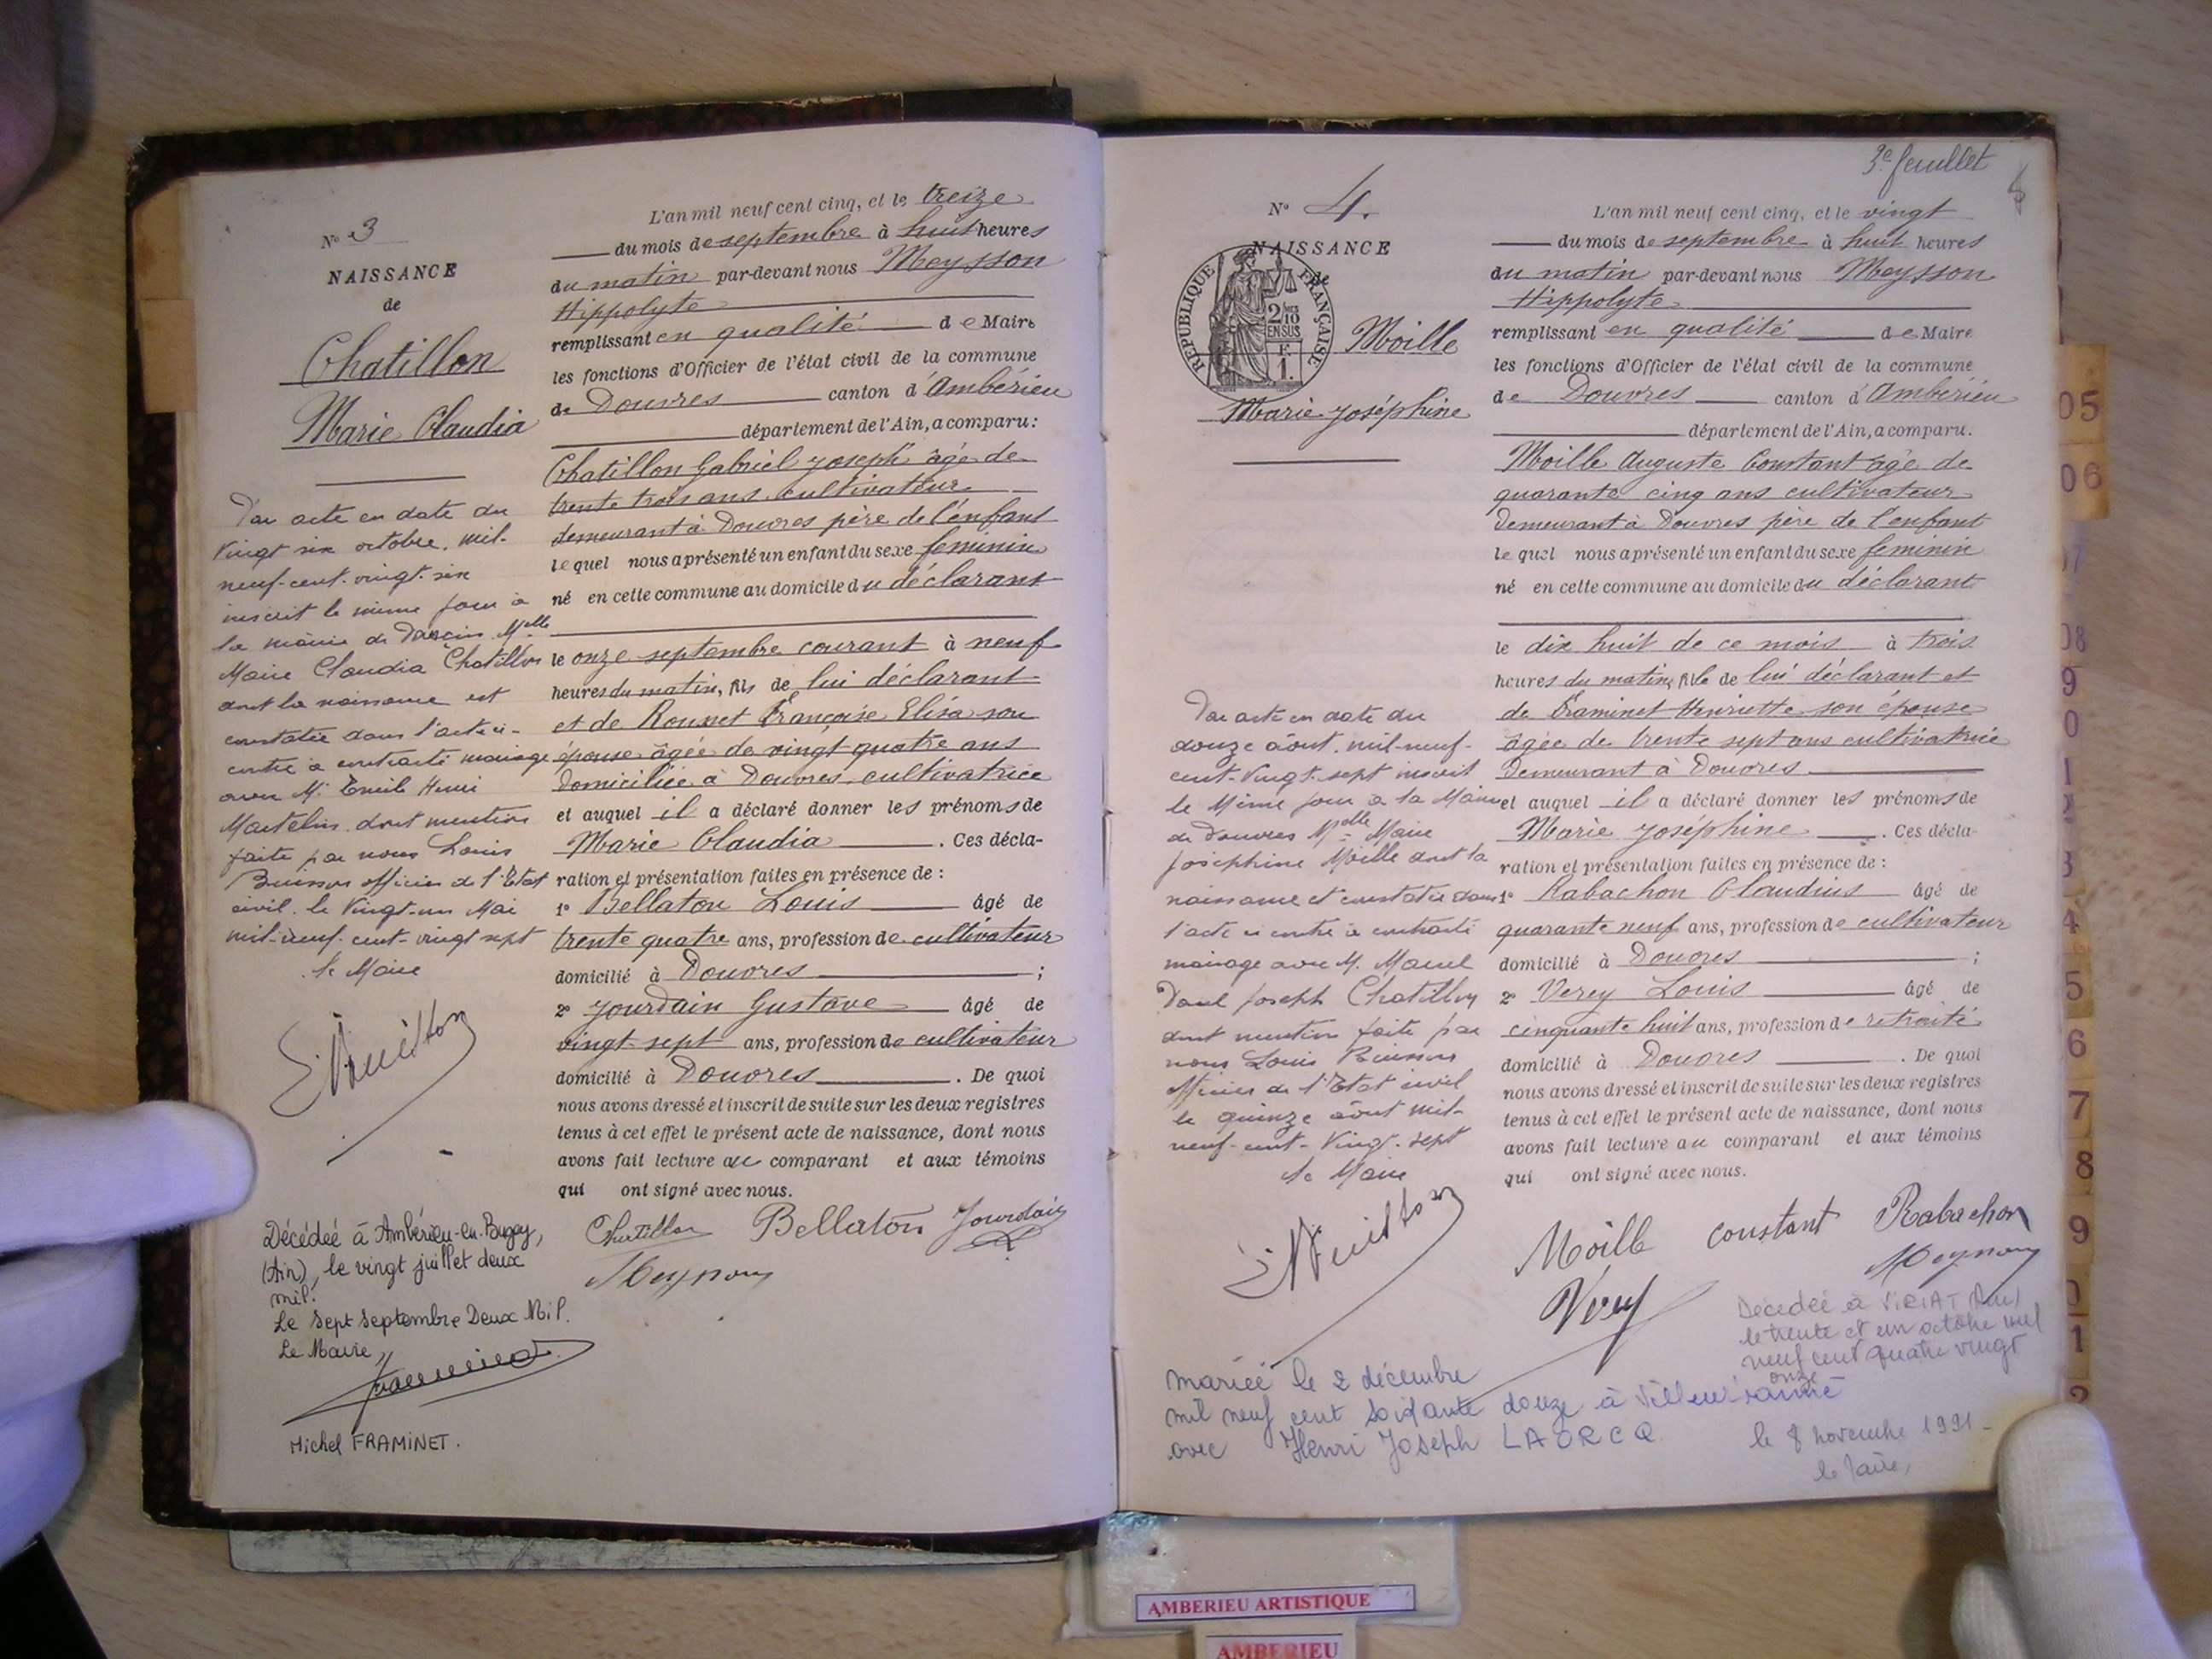 N° 3
NAISSANCE
de
Chatillon
Marie Claudia
Par acte en date du
Vingt six octobre. mil-
neuf-cent-vingt-six
inscrit le même jour à
la mairie de Melle
Marie Claudia Chatillon
dont la naissance est
constatée dans l'acte ci-
contre a contracté mariage
avec Mr Emile Henri
dont mention
faite par nous Louis
Buisson officier de l'Etat
civil. le Vingt-un Mai
mil-neuf-cent-vingt sept
Le Maire
Décédée à Ambérieu-en-Bugey,
(Ain), le vingt juillet deux
mil.
Le Sept Septembre Deux Mil.
Le Maire,
Michel FRAMINET.
L'an mil neuf cent cinq, et le treize
du mois de septembre à huit heures
du matin par-devant nous Meysson
Hippolyte
remplissant en qualité de Maire
les fonctions d'Officier de l'état civil de la commune
de Douvres canton d'Ambérieu
département de l'Ain, a comparu:
Chatillon Gabriel Joseph âgé de
trente trois ans cultivateur
demeurant à Douvres père de l'enfant
lequel nous a présenté un enfant du sexe féminin
né en cette commune au domicile du déclarant
le onze septembre courant à neuf
heures du matin, fils de lui déclarant
et de Françoise Elisa son
épouse âgée de vingt quatre ans
domiciliée à Douvres cultivatrice
et auquel il a déclaré donner les prénoms de
Marie Claudia. Ces décla-
ration et présentation faites en présence de :
1° Bellaton Louis âgé de
trente quatre ans, profession de cultivateur
domicilié à Douvres ;
2° Jourdain Gustave âgé de
vingt sept ans, profession de cultivateur
domicilié à Douvres. De quoi
nous avons dressé et inscrit de suite sur les deux registres
tenus à cet effet le présent acte de naissance, dont nous
avons fait lecture au comparant et aux témoins
qui ont signé avec nous.
Chatillon Bellaton Jourdain
Meysson
3e feuillet
N° 4.
NAISSANCE
de
REPUBLIQUE FRANÇAISE
2/10 EN SUS
F. 1.
Moille
Marie Joséphine
Par acte en date du
douze août. mil-neuf-
cent-Vingt-sept inscrit
le Même jour à la Mairie
de Douvres Melle Marie
Joséphine Moille dont la
naissance est constatée dans
l'acte ci contre a contracté
mariage avec M. Marcel
Paul Joseph Chatillon
dont mention faite par
nous Louis Buisson
Officier de l'Etat civil
le quinze août mil-
neuf-cent-Vingt-sept
Le Maire
L'an mil neuf cent cinq, et le vingt
du mois de septembre à huit heures
du matin par-devant nous Meysson
Hippolyte
remplissant en qualité de Maire
les fonctions d'Officier de l'état civil de la commune
de Douvres canton d'Ambérieu
département de l'Ain, a comparu.
Moille Auguste Constant âgé de
quarante cinq ans cultivateur
demeurant à Douvres père de l'enfant
lequel nous a présenté un enfant du sexe féminin
né en cette commune au domicile du déclarant
le dix huit de ce mois à trois
heures du matin, fils de lui déclarant et
de Framinet Henriette son épouse
âgée de trente sept ans cultivatrice
demeurant à Douvres
et auquel il a déclaré donner les prénoms de
Marie Joséphine. Ces décla-
ration et présentation faites en présence de :
1° Rabachon Claudius âgé de
quarante neuf ans, profession de cultivateur
domicilié à Douvres ;
2° Verey Louis âgé de
cinquante huit ans, profession de retraité
domicilié à Douvres. De quoi
nous avons dressé et inscrit de suite sur les deux registres
tenus à cet effet le présent acte de naissance, dont nous
avons fait lecture au comparant et aux témoins
qui ont signé avec nous.
Moille constant Rabachon
Verey Meysson
Décédée à VIRIAT (Ain)
le trente et un octobre mil
neuf cent quatre vingt
onze
le 8 novembre 1991-
le Maire,
mariée le 2 décembre
mil neuf cent soixante douze à Villeurbanne
avec Henri Joseph LAORCQ
05
06
07
08
9
0
1
2
3
4
5
6
7
8
9
0
1
2
AMBERIEU ARTISTIQUE
AMBERIEU